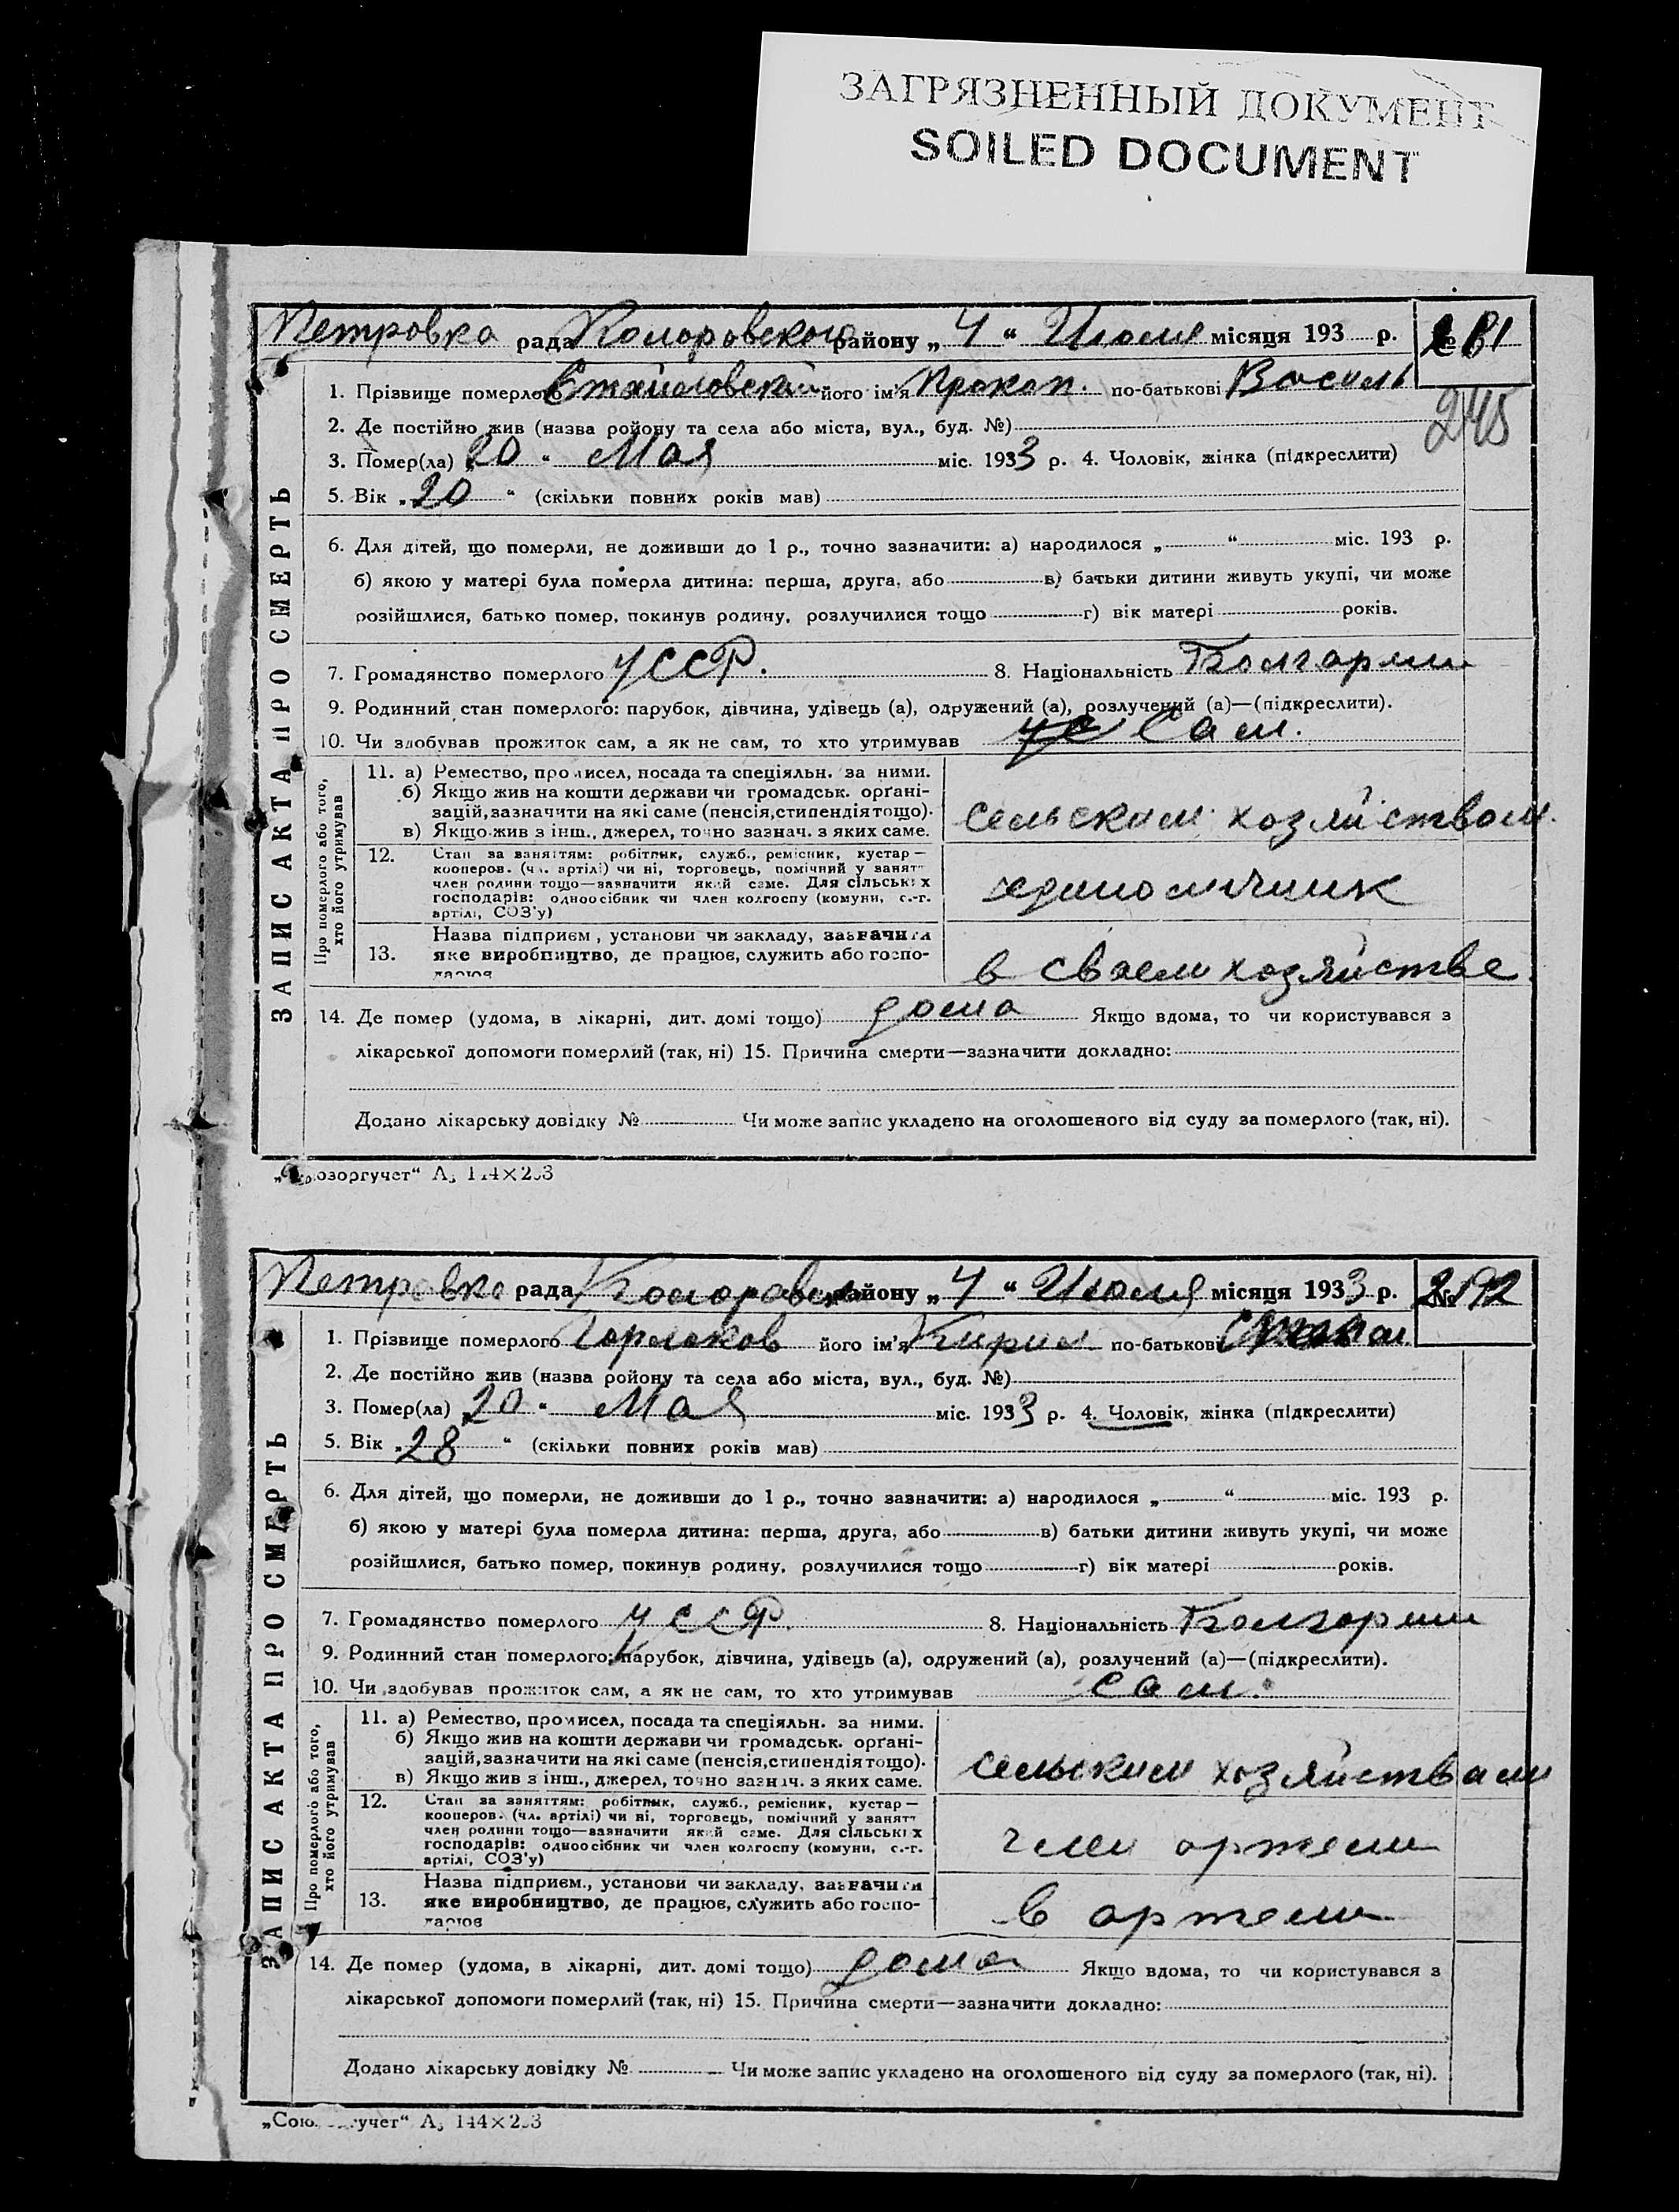 ЗАГРЯЗНЕННЫЙ ДОКУМЕНТ
SOILED DOCUMENT
Петровка рада району „ 4 “ Июля місяця 193 р.
245
1. Прізвище померлого його ім'я Прокоп. по-батькові Василь
2. Де постійно жив (назва району та села або міста, вул., буд. №)
3. Помер(ла) „ 20 “ Мая міс. 1933 р. 4. Чоловік, жінка (підкреслити)
5. Вік „ 20 “ (скільки повних років мав)
6. Для дітей, що померли, не доживши до 1 р., точно зазначити: а) народилося „ “ міс. 193 р.
б) якою у матері була померла дитина: перша, друга, або в) батьки дитини живуть укупі, чи може
розійшлися, батько помер, покинув родину, розлучилися тощо г) вік матері років.
7. Громадянство померлого УССР. 8. Національність
9. Родинний стан померлого: парубок, дівчина, удівець (а), одружений (а), розлучений (а)—(підкреслити).
10. Чи здобував прожиток сам, а як не сам, то хто утримував Сам.
ЗАПИС АКТА ПРО СМЕРТЬ
Про померлого або того,
хто його утримував
11. а) Ремество, промисел, посада та спеціяльн. за ними.
б) Якщо жив на кошти держави чи громадськ. орґані-
зацій, зазначити на які саме (пенсія, стипендія тощо).
в) Якщо жив з інш., джерел, точно зазнач. з яких саме.
сельским хозяйством.
12. Стан за заняттям: робітник, служб., ремісник, кустар—
кооперов. (чл. артілі) чи ні, торговець, помічний у занятт
член родини тощо—зазначити який саме. Для сільських
господарів: одноосібник чи член колгоспу (комуни, с.-г.
артілі, СОЗ'у)
единоличник
Назва підприєм., установи чи закладу, зазначити
13. яке виробництво, де працює, служить або госпо-
дарює
в своем хозяйстве.
14. Де помер (удома, в лікарні, дит. домі тощо) дома Якщо вдома, то чи користувався з
лікарської допомоги померлий (так, ні) 15. Причина смерти—зазначити докладно:
Додано лікарську довідку № Чи може запис укладено на оголошеного від суду за померлого (так, ні).
„Союзоргучет“ А₅ 144×203
Петровка рада району „ 4 “ Июля місяця 1933 р. № 192
1. Прізвище померлого його ім'я Кирил по-батькові
2. Де постійно жив (назва району та села або міста, вул., буд. №)
3. Помер(ла) „ 20 “ Мая міс. 1933 р. 4. Чоловік, жінка (підкреслити)
5. Вік „ 28 “ (скільки повних років мав)
6. Для дітей, що померли, не доживши до 1 р., точно зазначити: а) народилося „ “ міс. 193 р.
б) якою у матері була померла дитина: перша, друга, або в) батьки дитини живуть укупі, чи може
розійшлися, батько помер, покинув родину, розлучилися тощо г) вік матері років.
7. Громадянство померлого УССР. 8. Національність
9. Родинний стан померлого: парубок, дівчина, удівець (а), одружений (а), розлучений (а)—(підкреслити).
10. Чи здобував прожиток сам, а як не сам, то хто утримував сам.
ЗАПИС АКТА ПРО СМЕРТЬ
Про померлого або того,
хто його утримував
11. а) Ремество, промисел, посада та спеціяльн. за ними.
б) Якщо жив на кошти держави чи громадськ. орґані-
зацій, зазначити на які саме (пенсія, стипендія тощо).
в) Якщо жив з інш., джерел, точно зазнач. з яких саме.
сельским хозяйствам
12. Стан за заняттям: робітник, служб., ремісник, кустар—
кооперов. (чл. артілі) чи ні, торговець, помічний у занятт
член родини тощо—зазначити який саме. Для сільських
господарів: одноосібник чи член колгоспу (комуни, с.-г.
артілі, СОЗ'у)
член артели
Назва підприєм., установи чи закладу, зазначити
13. яке виробництво, де працює, служить або госпо-
дарює
в артели
14. Де помер (удома, в лікарні, дит. домі тощо) дома Якщо вдома, то чи користувався з
лікарської допомоги померлий (так, ні) 15. Причина смерти—зазначити докладно:
Додано лікарську довідку № Чи може запис укладено на оголошеного від суду за померлого (так, ні).
„Союзоргучет“ А₅ 144×203